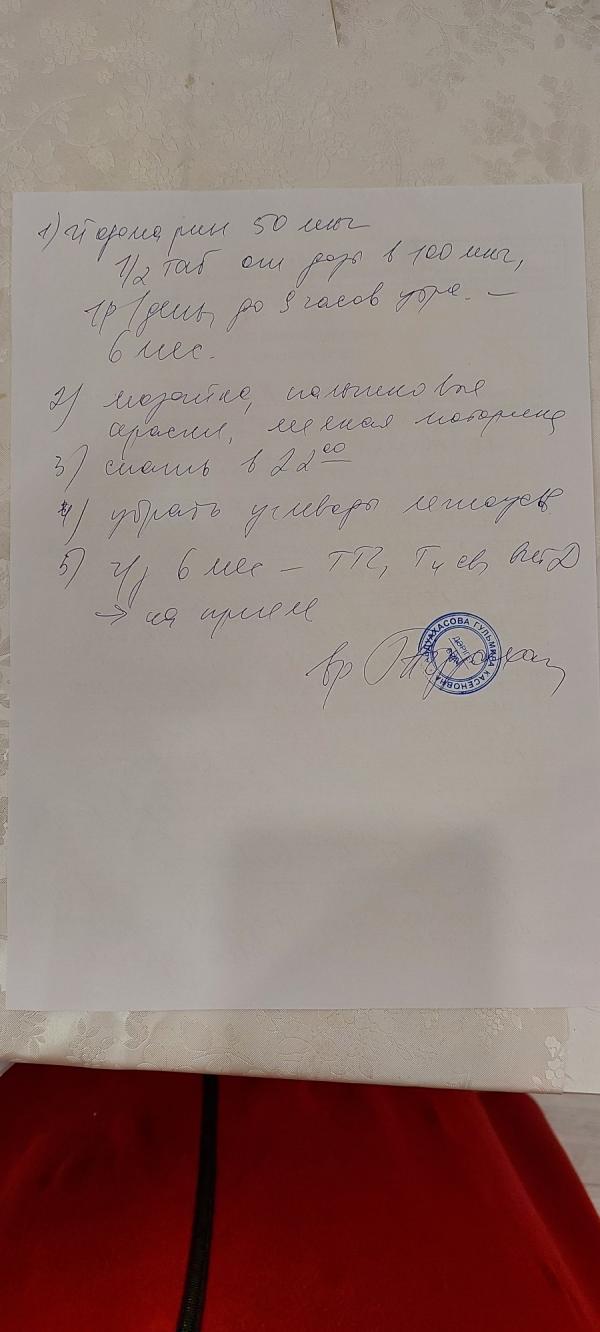 1) Йодомарин 50 мкг
1/2 таб от дозы в 100 мкг,
1р/день, до 9 часов утра. –
6 мес.
2) мозаика, пальчиковые
краски, мелкая моторика
3) спать в 22 00
4) убрать углеводы легкоусв
5) ч/з 6 мес – ТТГ, Т4 св, вит Д
→ на прием
вр
АБДУАХАСОВА ГУЛЬМИРА КАСЕНОВНА
ДӘРІГЕР
ВРАЧ